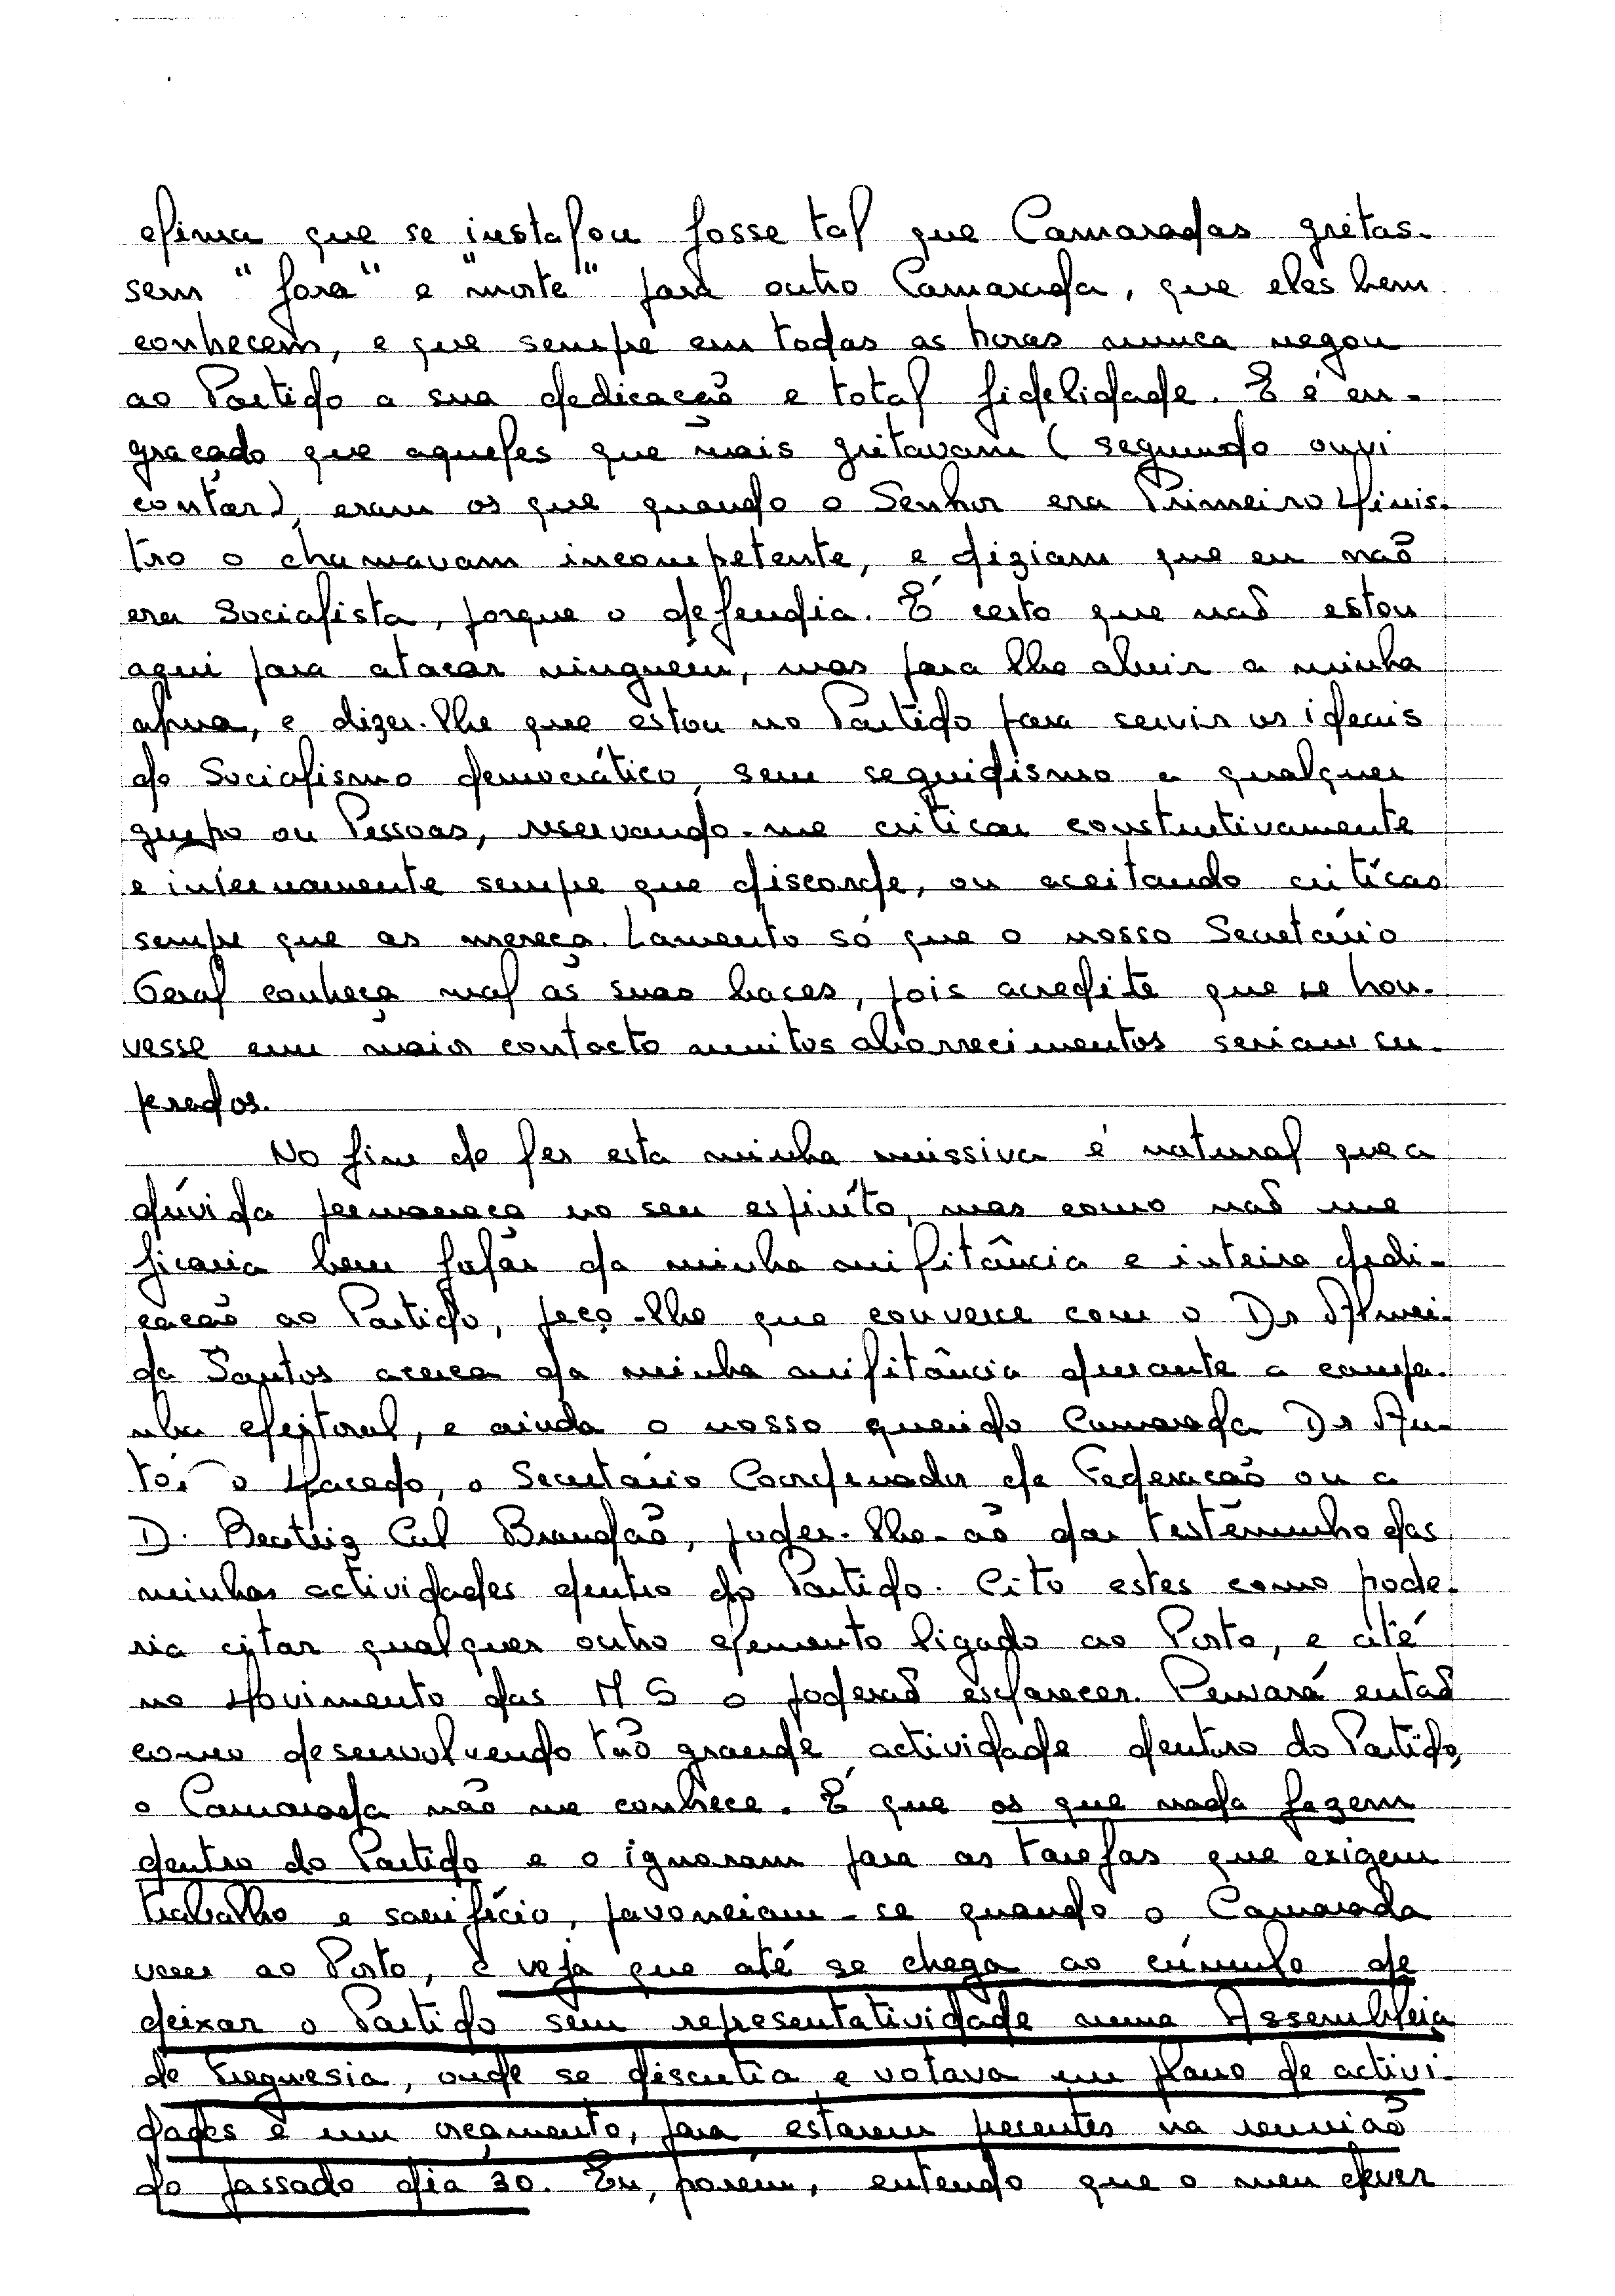 clima que se instalou fosse tal que Camaradas gritas-
sem "fora" e "morte" para outro Camarada, que eles bem
conhecem, e que sempre em todas as horas nunca negou
ao Partido a sua dedicação e total fidelidade. E é en-
graçado que aqueles que mais gritavam (segundo ouvi
contar), eram os que quando o Senhor era Primeiro Minis-
tro o chamavam incompetente, e diziam que eu não
era Socialista, porque o defendia. É certo que não estou
aqui para atacar ninguém, mas para lhe abrir a minha
alma, e dizer-lhe que estou no Partido para servir os ideais
do Socialismo democrático, sem seguidismo a qualquer
grupo ou Pessoas, reservando-me criticar construtivamente
e internamente sempre que discorde, ou aceitando críticas
sempre que as mereça. Lamento só que o nosso Secretário
Geral conheça mal as suas bases, pois acredite que se hou-
vesse um maior contacto muitos aborrecimentos seriam su-
perados.
No fim de ler esta minha missiva é natural que a
dúvida permaneça no seu espírito, mas como não me
ficaria bem falar da minha militância e inteira dedi-
cação ao Partido, peço-lhe que converse com o Dr Almei-
da Santos acerca da minha militância durante a campa-
nha eleitoral, e ainda o nosso querido Camarada Dr An-
tónio Macedo, o Secretário Coordenador da Federação ou a
D. Beatriz Cal Brandão, poder-lhe-ão dar testemunho das
minhas actividades dentro do Partido. Cito estes como pode-
ria citar qualquer outro elemento ligado ao Porto, e até
no Movimento das M S o poderão esclarecer. Pensará então
como desenvolvendo tão grande actividade dentro do Partido,
o Camarada não me conhece. É que os que nada fazem
dentro do Partido e o ignoram para as tarefas que exigem
trabalho e sacrifício, pavoneiam-se quando o Camarada
vem ao Porto, e veja que até se chega ao cúmulo de
deixar o Partido sem representatividade numa Assembleia
de Freguesia, onde se discutia e votava um plano de activi-
dades e um orçamento, para estarem presentes na reunião
do passado dia 30. Eu, porém, entendo que o meu dever